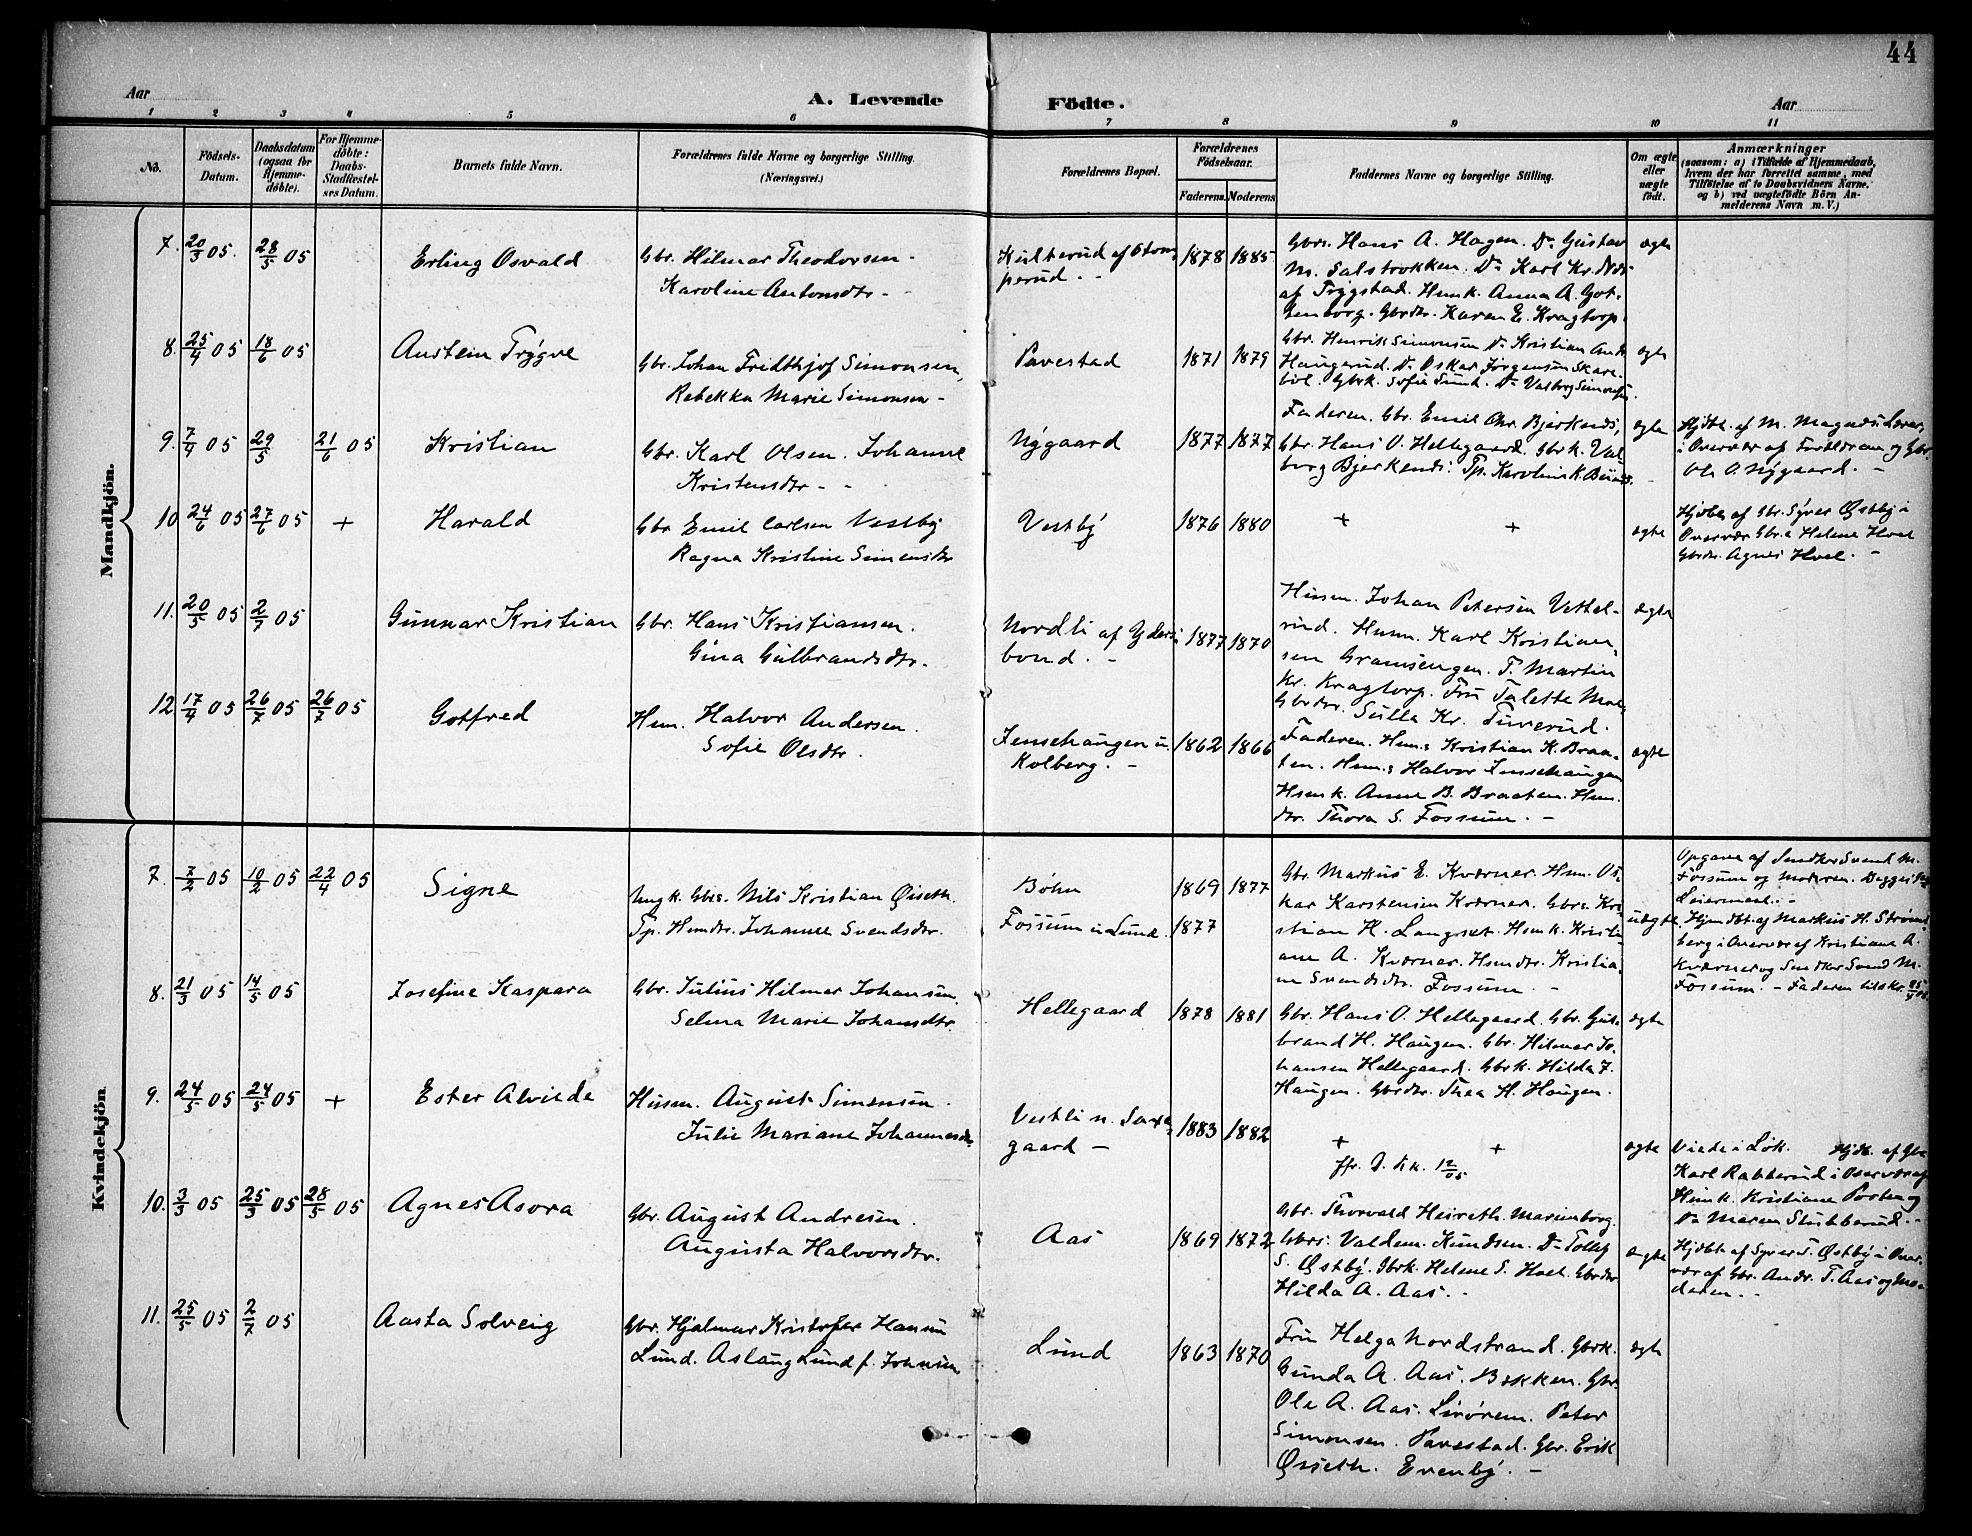 44
Aar
A. Levende
Födte.
Aar
1 2 3 4 5 6 7 8 9 10 11
No.
Födsels-
Datum.
Daabsdatum
(ogsaa for
Hjemme-
döbte).
For Hjemme-
döbte:
Daabs-
Stadfæstel-
ses Datum.
Barnets fulde Navn.
Forældrenes fulde Navne og borgerlige Stilling.
(Næringsvei.)
Forældrenes Bopæl.
Forældrenes
Födselsaar.
Faderens. Moderens
Faddernes Navne og borgerlige Stilling.
Om ægte
eller
uægte
födt.
Anmærkninger
(saasom: a) i Tilfælde af Hjemmedaab,
hvem der har forrettet samme, med
Tilföielse af to Daabsvidners Navne,
og b) ved uægtefödte Börn An-
melderens Navn m. V.)
Mandkjön.
7. 20/3 05. 28/5 05
Erling Osvald
Gbr. Hilmar Theodorsen -
Karoline Antonsdtr -
Kulterud af Stom
perud. -
1878 1885
Gbrs. Hans A. Hagen. Do Gustav
M. Salsbrokken. Do Karl Kr.
af Trygstad. Hmk. Anna A. Got-
enborg. Gbrdtr. Karen E. Kragtorp.
ægte
8. 25/4 05 18/6 05
Austein Trygve
Gbr. Johan Fridthjof Simonsen,
Rebekka Marie Simonsen -
Pavestad
1871 1879
Gbr. Henrik Simonsen Do Kristian And.
Haugerud. Do Oskar Jörgensen Skare-
bøl. Gbrk. Sofie Do Valborg Simonsen.
ægte
9. 7/4 05 29/5 21/6 05
Kristian
Gbr. Karl Olsen. Johanne
Kristensdtr - -
Nygaard
1877 1877
Faderen. Gbr. Emil Chr. Bjerkends,
Gbr. Hans O. Hellegaard. Gbrk. Val-
borg Bjerkends. Tp. Karolin K.
ægte
Hjdbt. af M. Magnus Lærer,
i Overvær af Forældrene og Gbr.
Ole A. Nygaard. -
10 24/6 05 27/6 05 +
Harald
Gbr Emil Carlsen Vestby
Ragna Kristine Simensdtr
Vestby
1876 1880
+ +
ægte
Hjdbt af Gbr. Syver Østby i
Overvær Gbr.e Helene Hvel
Gbrdtr. Agnes Hvel. -
11. 20/5 05 2/7 05
Gunnar Kristian
Gbr. Hans Kristiansen.
Gina Gulbrandsdtr.
Nordli af Yders
bond. -
1877 1870
Husm. Johan Petersen Vettel-
rud. Husm. Karl Kristian-
sen Gramsengen. T. Martin
Kr. Kragtorp. Fru Talette
Gbrdtr. Sulla Kr. Tuverud.
ægte
12 17/4 05 26/7 05 26/7 05
Gotfred
Hsm. Halvor Andersen.
Sofie Olsdtr.
Jensehaugen u.
Kolberg. -
1862 1866
Faderen. Hsm.s Kristian K. Braa-
ten. Hsm.s Halvor Jensehaugen
Hsmk. Anne B. Braaten. Hsm.
dtr. Thora S. Fossum. -
ægte
Kvindekjön
7. 7/2 05 10/2 05 22/4 05
Signe
Ungk. Gbrs. Nils Kristian Øiseth.
Tp. Hsmdtr. Johanne Svendsdtr.
Böhn
Fossum u. Lund.
1869 1877
1877
Gbr. Markus E. Kværner. Hsm. Os-
kar Karstensen Kværner. Gbrs. Kri-
stian H. Langset. Hsmk. Kristi-
ane A. Kværner. Hsmdtr. Kristia-
ne Svendsdtr. Fossum. -
uægte
Opgave af Snedker Svend M.
Fossum og Moderen. Begges
Leiermaal. -
Hjmdbt. af Markus H. Strøm-
berg i Overvær af Kristiane A.
Kværner og Snedker Svend M.
Fossum. - Faderen
8. 21/3 05 14/5 05
Josefine Kaspara
Gbr. Julius Hilmar Johansen,
Selma Marie Johansdtr
Hellegaard
1878 1881
Gbr. Hans O. Hellegaard. Gbr. Gul-
brand H. Haugen. Gbr. Hilmar Jo-
hansen Hellegaard. Gbrk. Hilda J.
Haugen. Gbrdtr. Thea H. Haugen.
ægte
9. 24/5 05 24/5 05 +
Ester Alvilde
Husm. August Simensen.
Julie Mariane Johannesdtr
Vestli u.
gaard -
1883 1882
+ +
12/05
ægte
Viede i Løk. Hjdb. af Gbr
Karl Rakkerud i Overvær af
Hsmk. Kristiane Porten og
Do Maren Stubberud. -
10. 3/3 05 25/3 05 28/5 05
Agnes Asora
Gbr. August Andresen.
Augusta Halvorsdtr.
Aas
1869 1872
Gbr. Thorvald Heireth. Marienborg.
Gbrs. Valdem. Knudsen. Do Tollef
S. Østby. Gbrk. Helene S. Hvel. Gbrdtr
Hilda A. Aas. -
ægte
Hjdbt af Syver T. Østby i Over-
vær af Gbr. Andr. T. Aas og Mo-
deren. -
11. 25/5 05 2/7 05
Aasta Solveig
Gbr. Hjalmar Kristofer Hansen
Lund. Aslaug Lund f. Johnsen
Lund
1863 1870
Fru Helga Nordstrand. Gbrk.
Gunda A. Aas. Bakken. Gbr.
Ole A. Aas. Peter
Simonsen. Pavestad. Gbr. Erik
Øiseth. Evenby. -
ægte